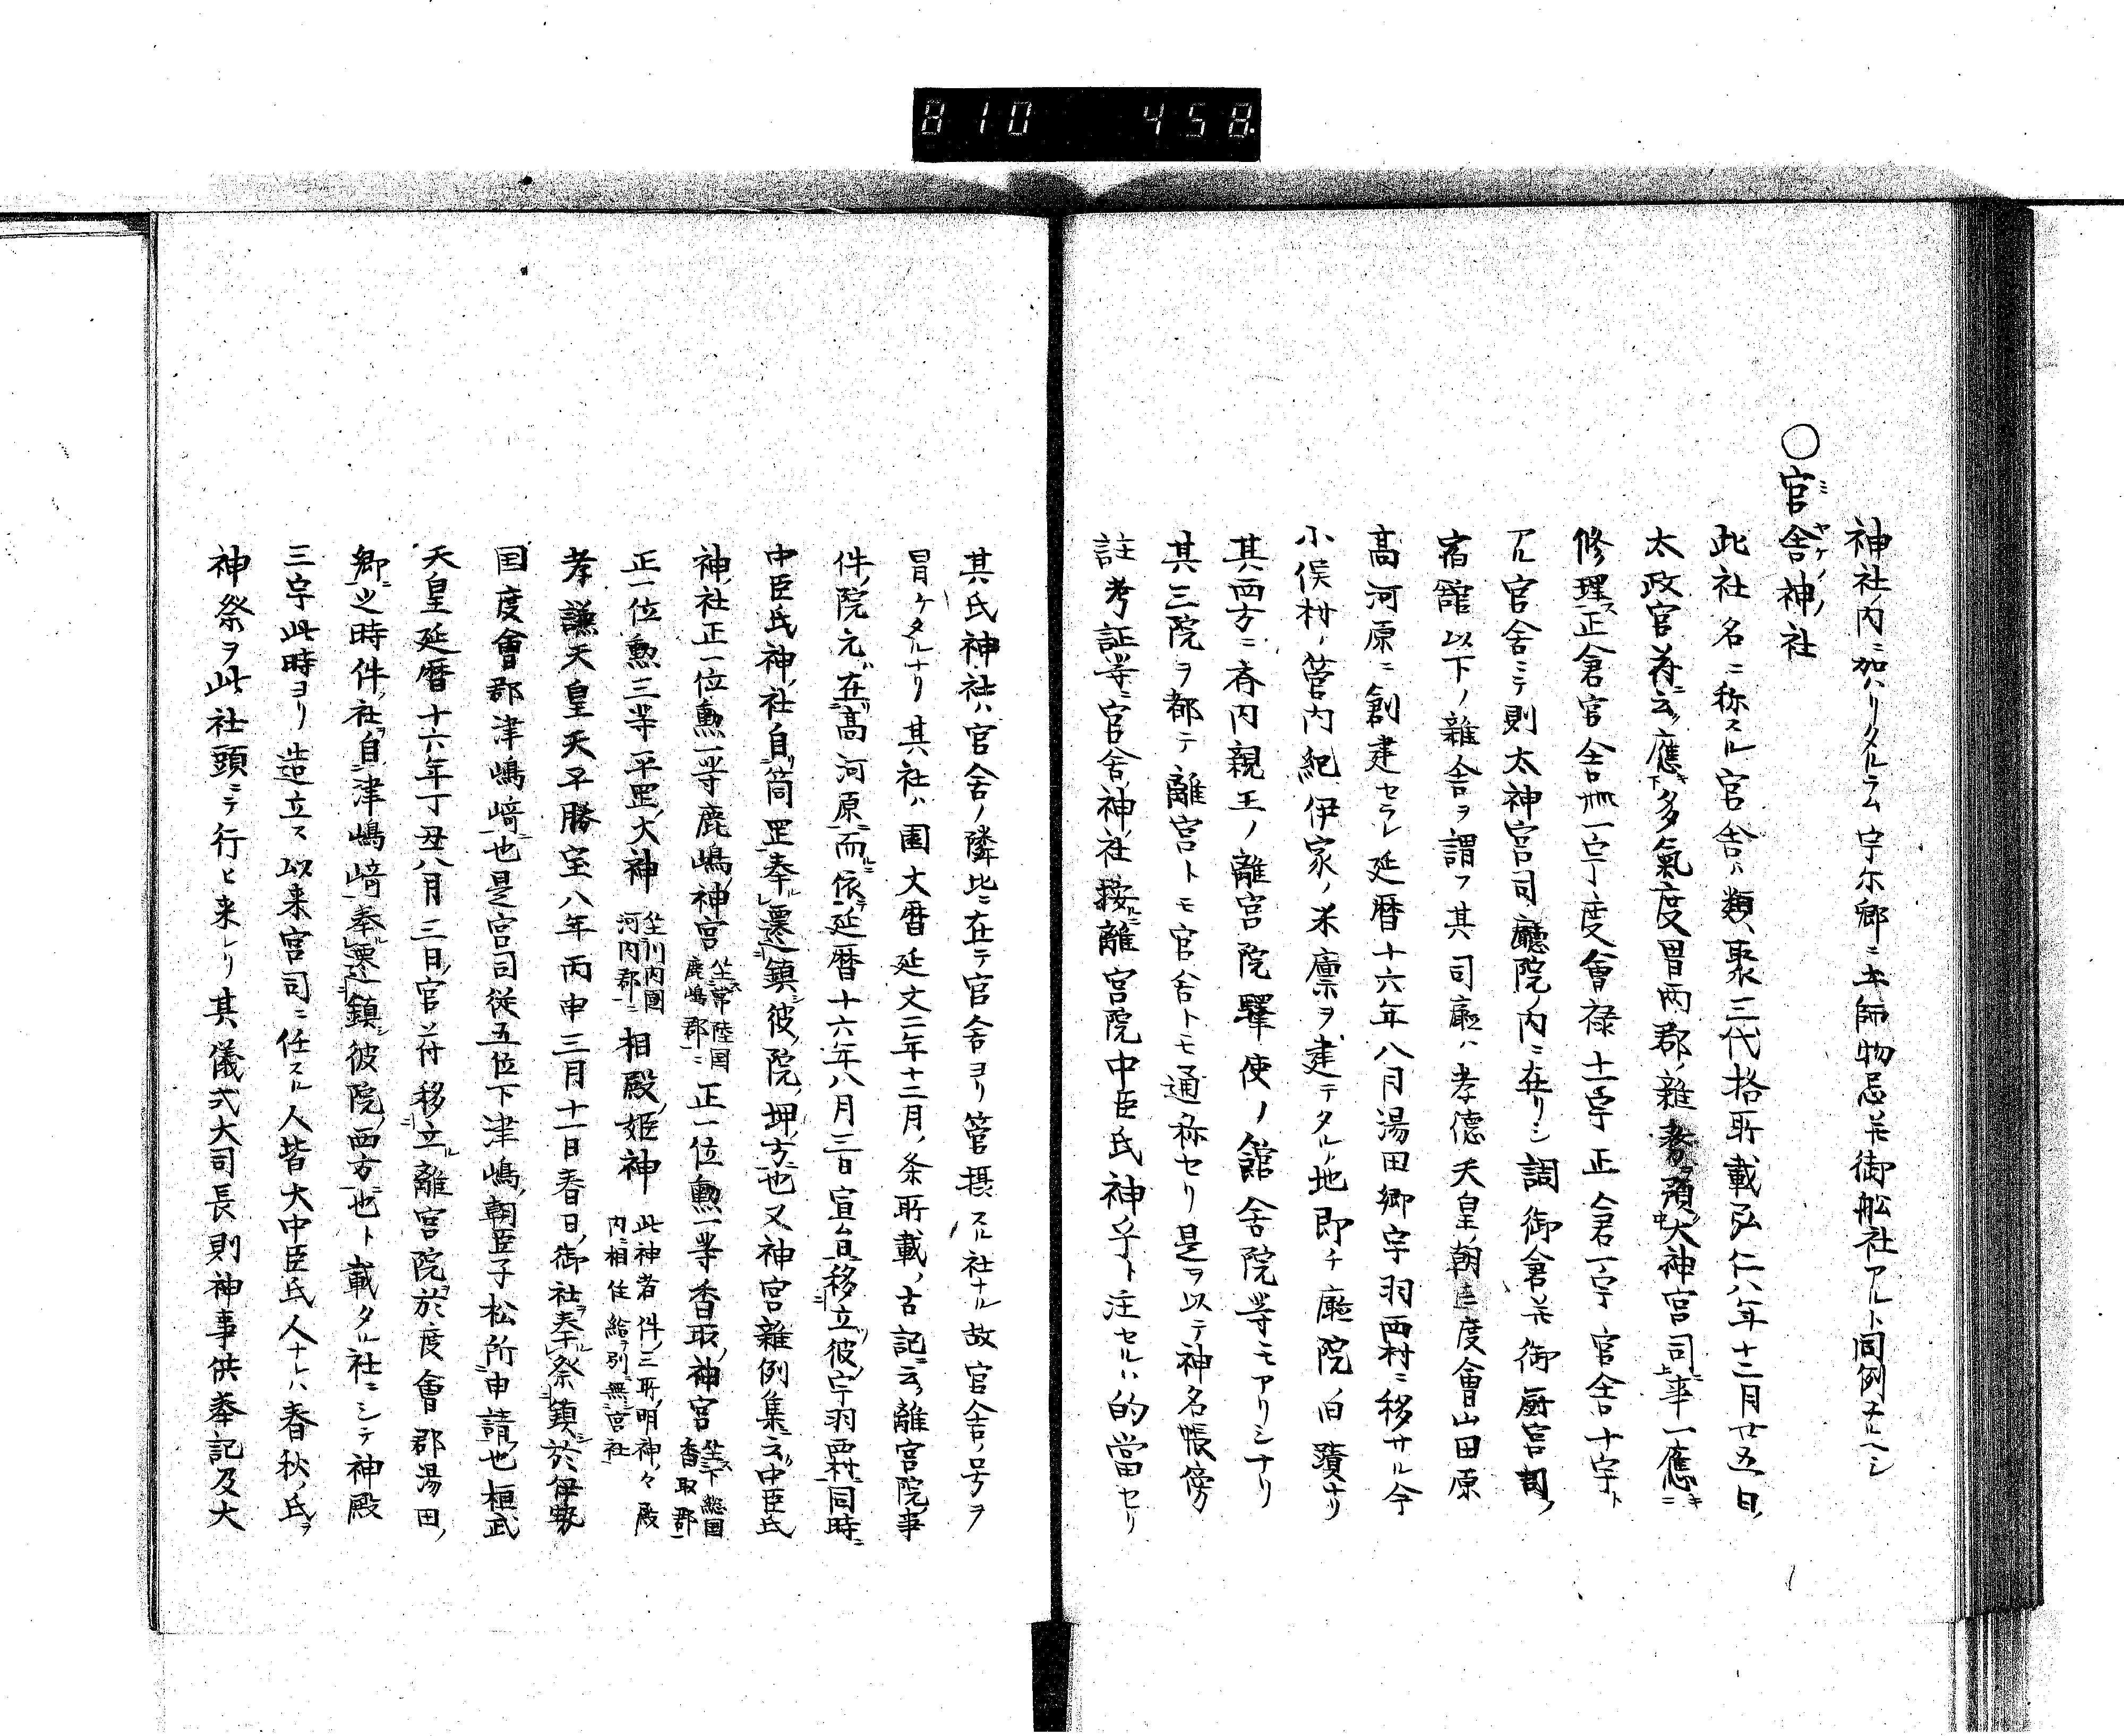 810 458
神社ノ内ニ加ハリタルラム宇尓郷ニ土師物忌并御舩社アルト同例ナルヘシ
〇官舎神社
此社名ニ称スル官舎ハ類聚三代格所載弘仁八年十二月廿五日ノ
太政官符ニ云ク應多氣度會兩郡ノ雜務預大神宮司事一應
修理正倉官舎卌一宇度會禄十一宇正倉一宇官舎十宇ト
アル官舎ニテ則太神宮司ノ廳院ノ内ニ在リシ調御倉并御厨宮司ノ
宿舘以下ノ雜舎ヲ謂フ其司廰ハ孝徳天皇ノ朝ニ度會山田原
高河原ニ創建セラレ延暦十六年八月湯田郷宇羽西村ニ移サル今
小俣村ノ管内紀伊家ノ米廩ヲ建テタルノ地即チ廰院ノ旧蹟ナリ
其西方ニ斎内親王ノ離宮院驛使ノ舘舎院等モアリシナリ
其三院ヲ都テ離宮トモ官舎トモ通称セリ是ヲ以テ神名帳傍
註考証等ニ官舎神社按離宮院中臣氏神乎ト注セルハ的當セリ
其氏神社ハ官舎ノ隣比ニ在テ官舎ヨリ管摂スル社ナル故官舎ノ号ヲ
冒ケタルナリ其社ハ園太暦延文二年十二月ノ条所載ノ古記ニ云ク離宮院事
件ノ院元在高河原而依延暦十六年八月三日宣旨移立彼宇羽西村同時ニ
中臣氏神ノ社自筒罡奉遷鎮彼院ノ坤方也又神宮雜例集ニ云ク中臣氏
神社正一位勲一等鹿嶋神宮坐常陸国鹿嶋郡正一位勲一等香取神宮坐下総国香取郡
正一位勲三等平罡大神坐川内国河内郡相殿姫神此神者件ノ三所ノ明神々殿内ニ相住給別無宮社
孝謙天皇天平勝宝八年丙申三月十一日春日御社奉祭鎮於伊勢
国度會郡津嶋﨑也是宮司従五位下津嶋朝臣子松所申請也桓武
天皇延暦十六年丁丑八月三日官符移立離宮院於度會郡湯田ノ
郷之時件ノ社自津嶋﨑奉遷鎮彼院ノ西方也ト載タル社ニシテ神殿
三宇此時ヨリ造立ス以来宮司ニ任スル人皆大中臣氏人ナレハ春秋ノ氏ヲ
神祭ヲ此社頭ニテ行ヒ来レリ其儀式大司長則神事供奉記及大